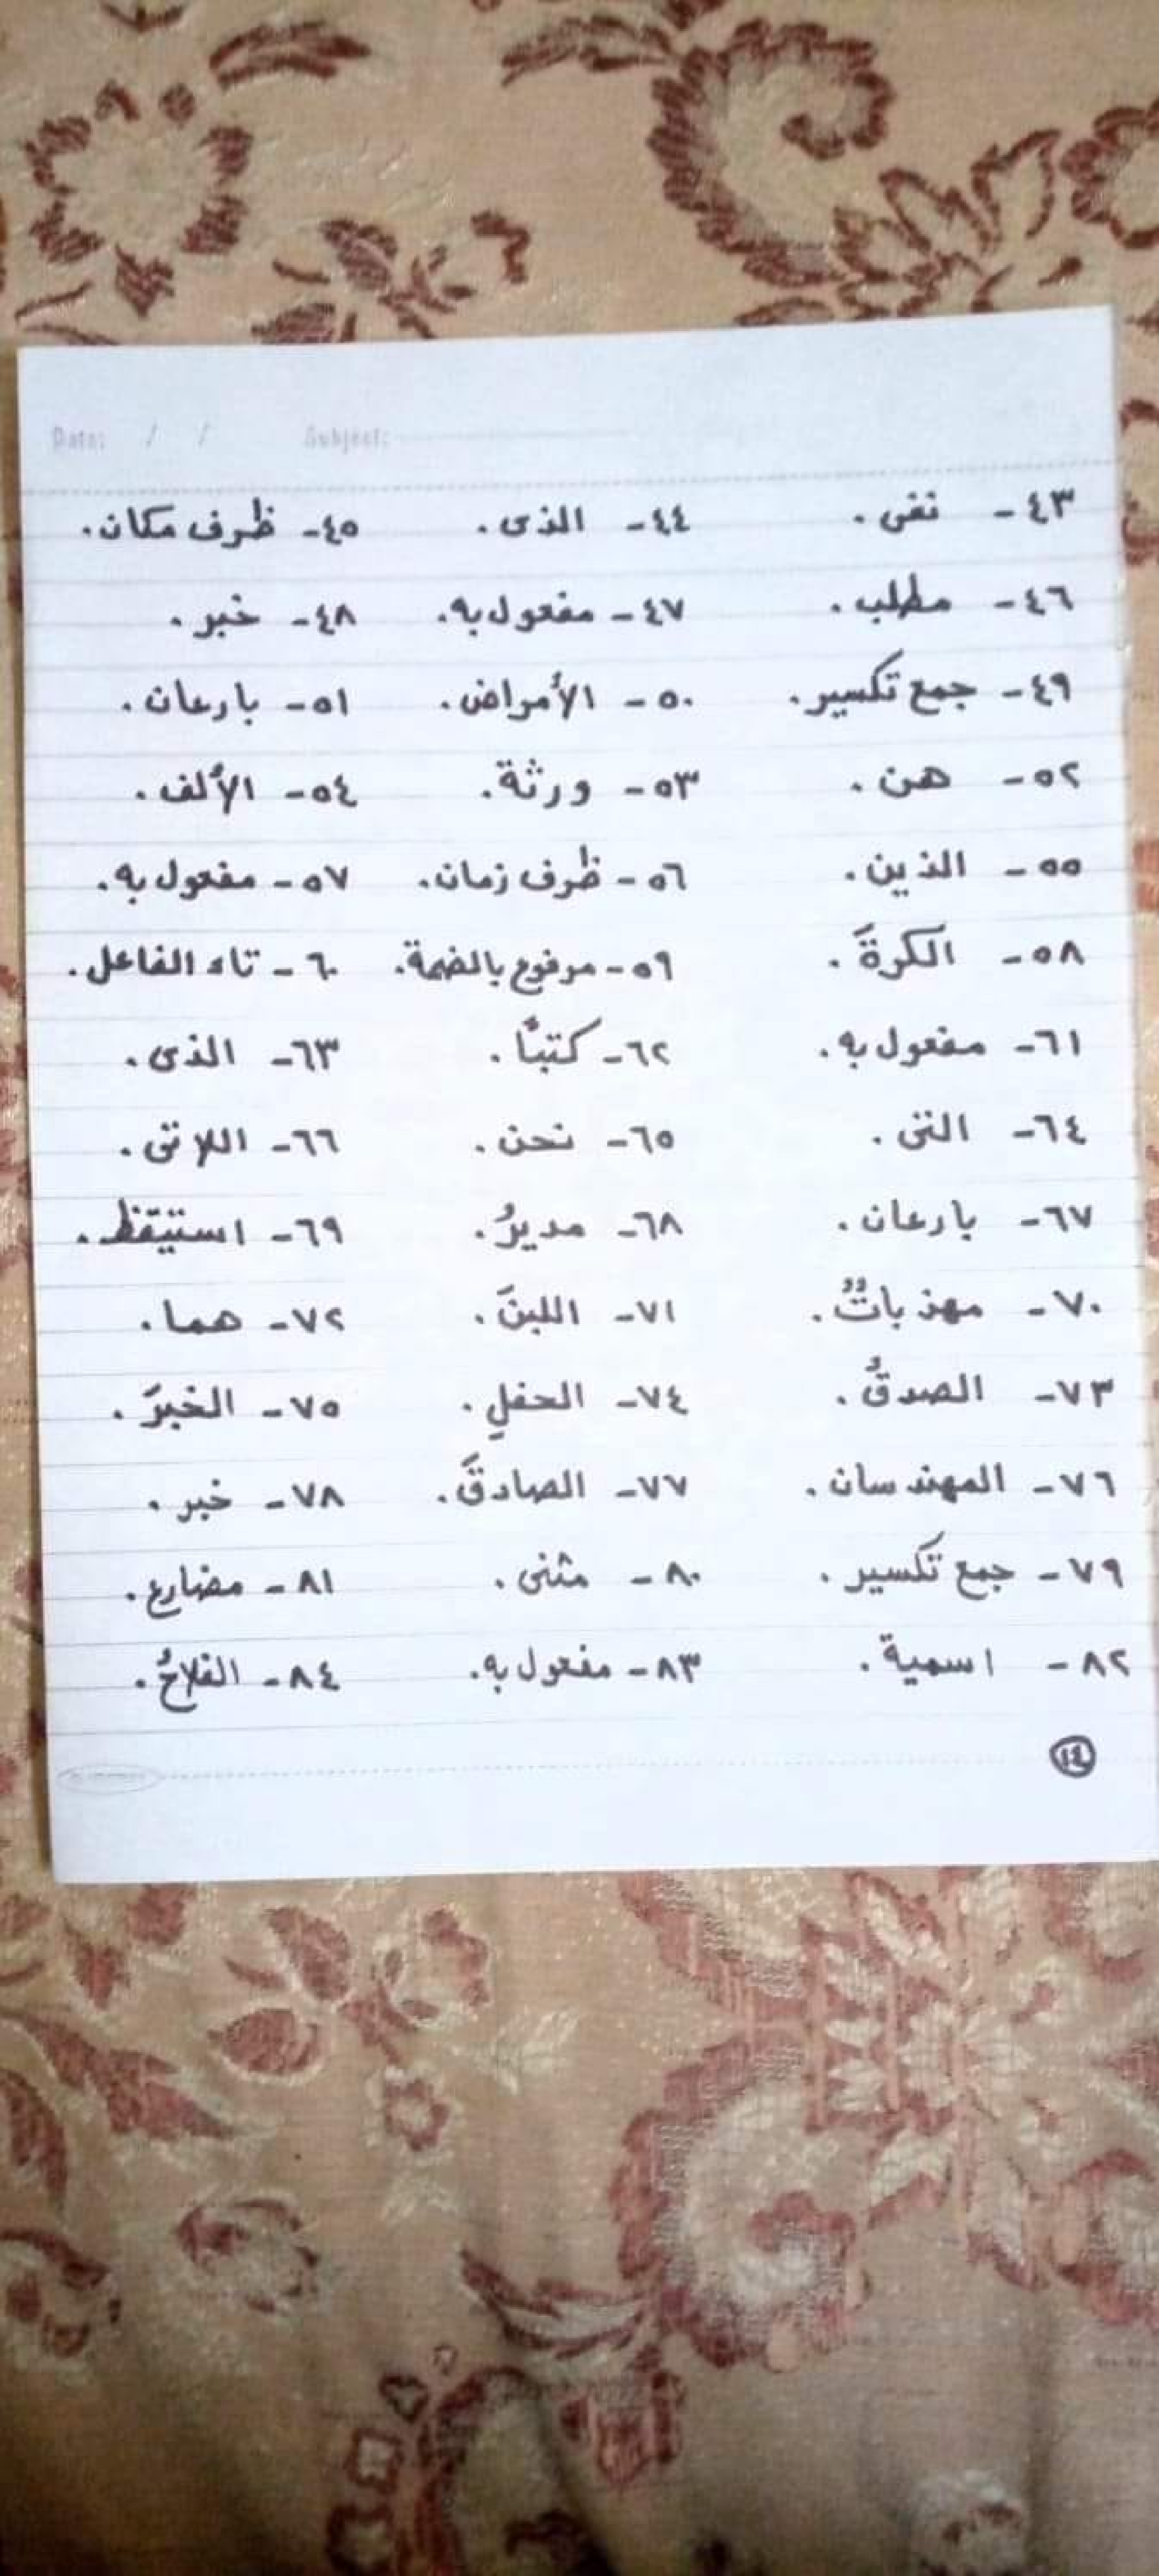 Date: / / Subject:
٤٣- نفى . ٤٤- الذى . ٤٥- ظرف مكان.
٤٦- مطلب . ٤٧- مفعول به. ٤٨- خبر .
٤٩- جمع تكسير. ٥٠- الأمراض. ٥١- بارعان .
٥٢- هن . ٥٣- ورثة. ٥٤- الألف .
٥٥- الذين . ٥٦- ظرف زمان. ٥٧- مفعول به.
٥٨- الكرةَ . ٥٩- مرفوع بالضمة. ٦٠- تاء الفاعل.
٦١- مفعول به. ٦٢- كتبًا . ٦٣- الذى .
٦٤- التى . ٦٥- نحن . ٦٦- اللاتى .
٦٧- بارعان . ٦٨- مديرُ. ٦٩- استيقظ .
٧٠- مهذباتٌ. ٧١- اللبنَ . ٧٢- هما .
٧٣- الصدقُ . ٧٤- الحفلِ . ٧٥- الخبرَ .
٧٦- المهندسان . ٧٧- الصادقَ . ٧٨- خبر .
٧٩- جمع تكسير . ٨٠- مثنى . ٨١- مضارع.
٨٢- اسمية . ٨٣- مفعول به. ٨٤- الفلاحُ.
١٤